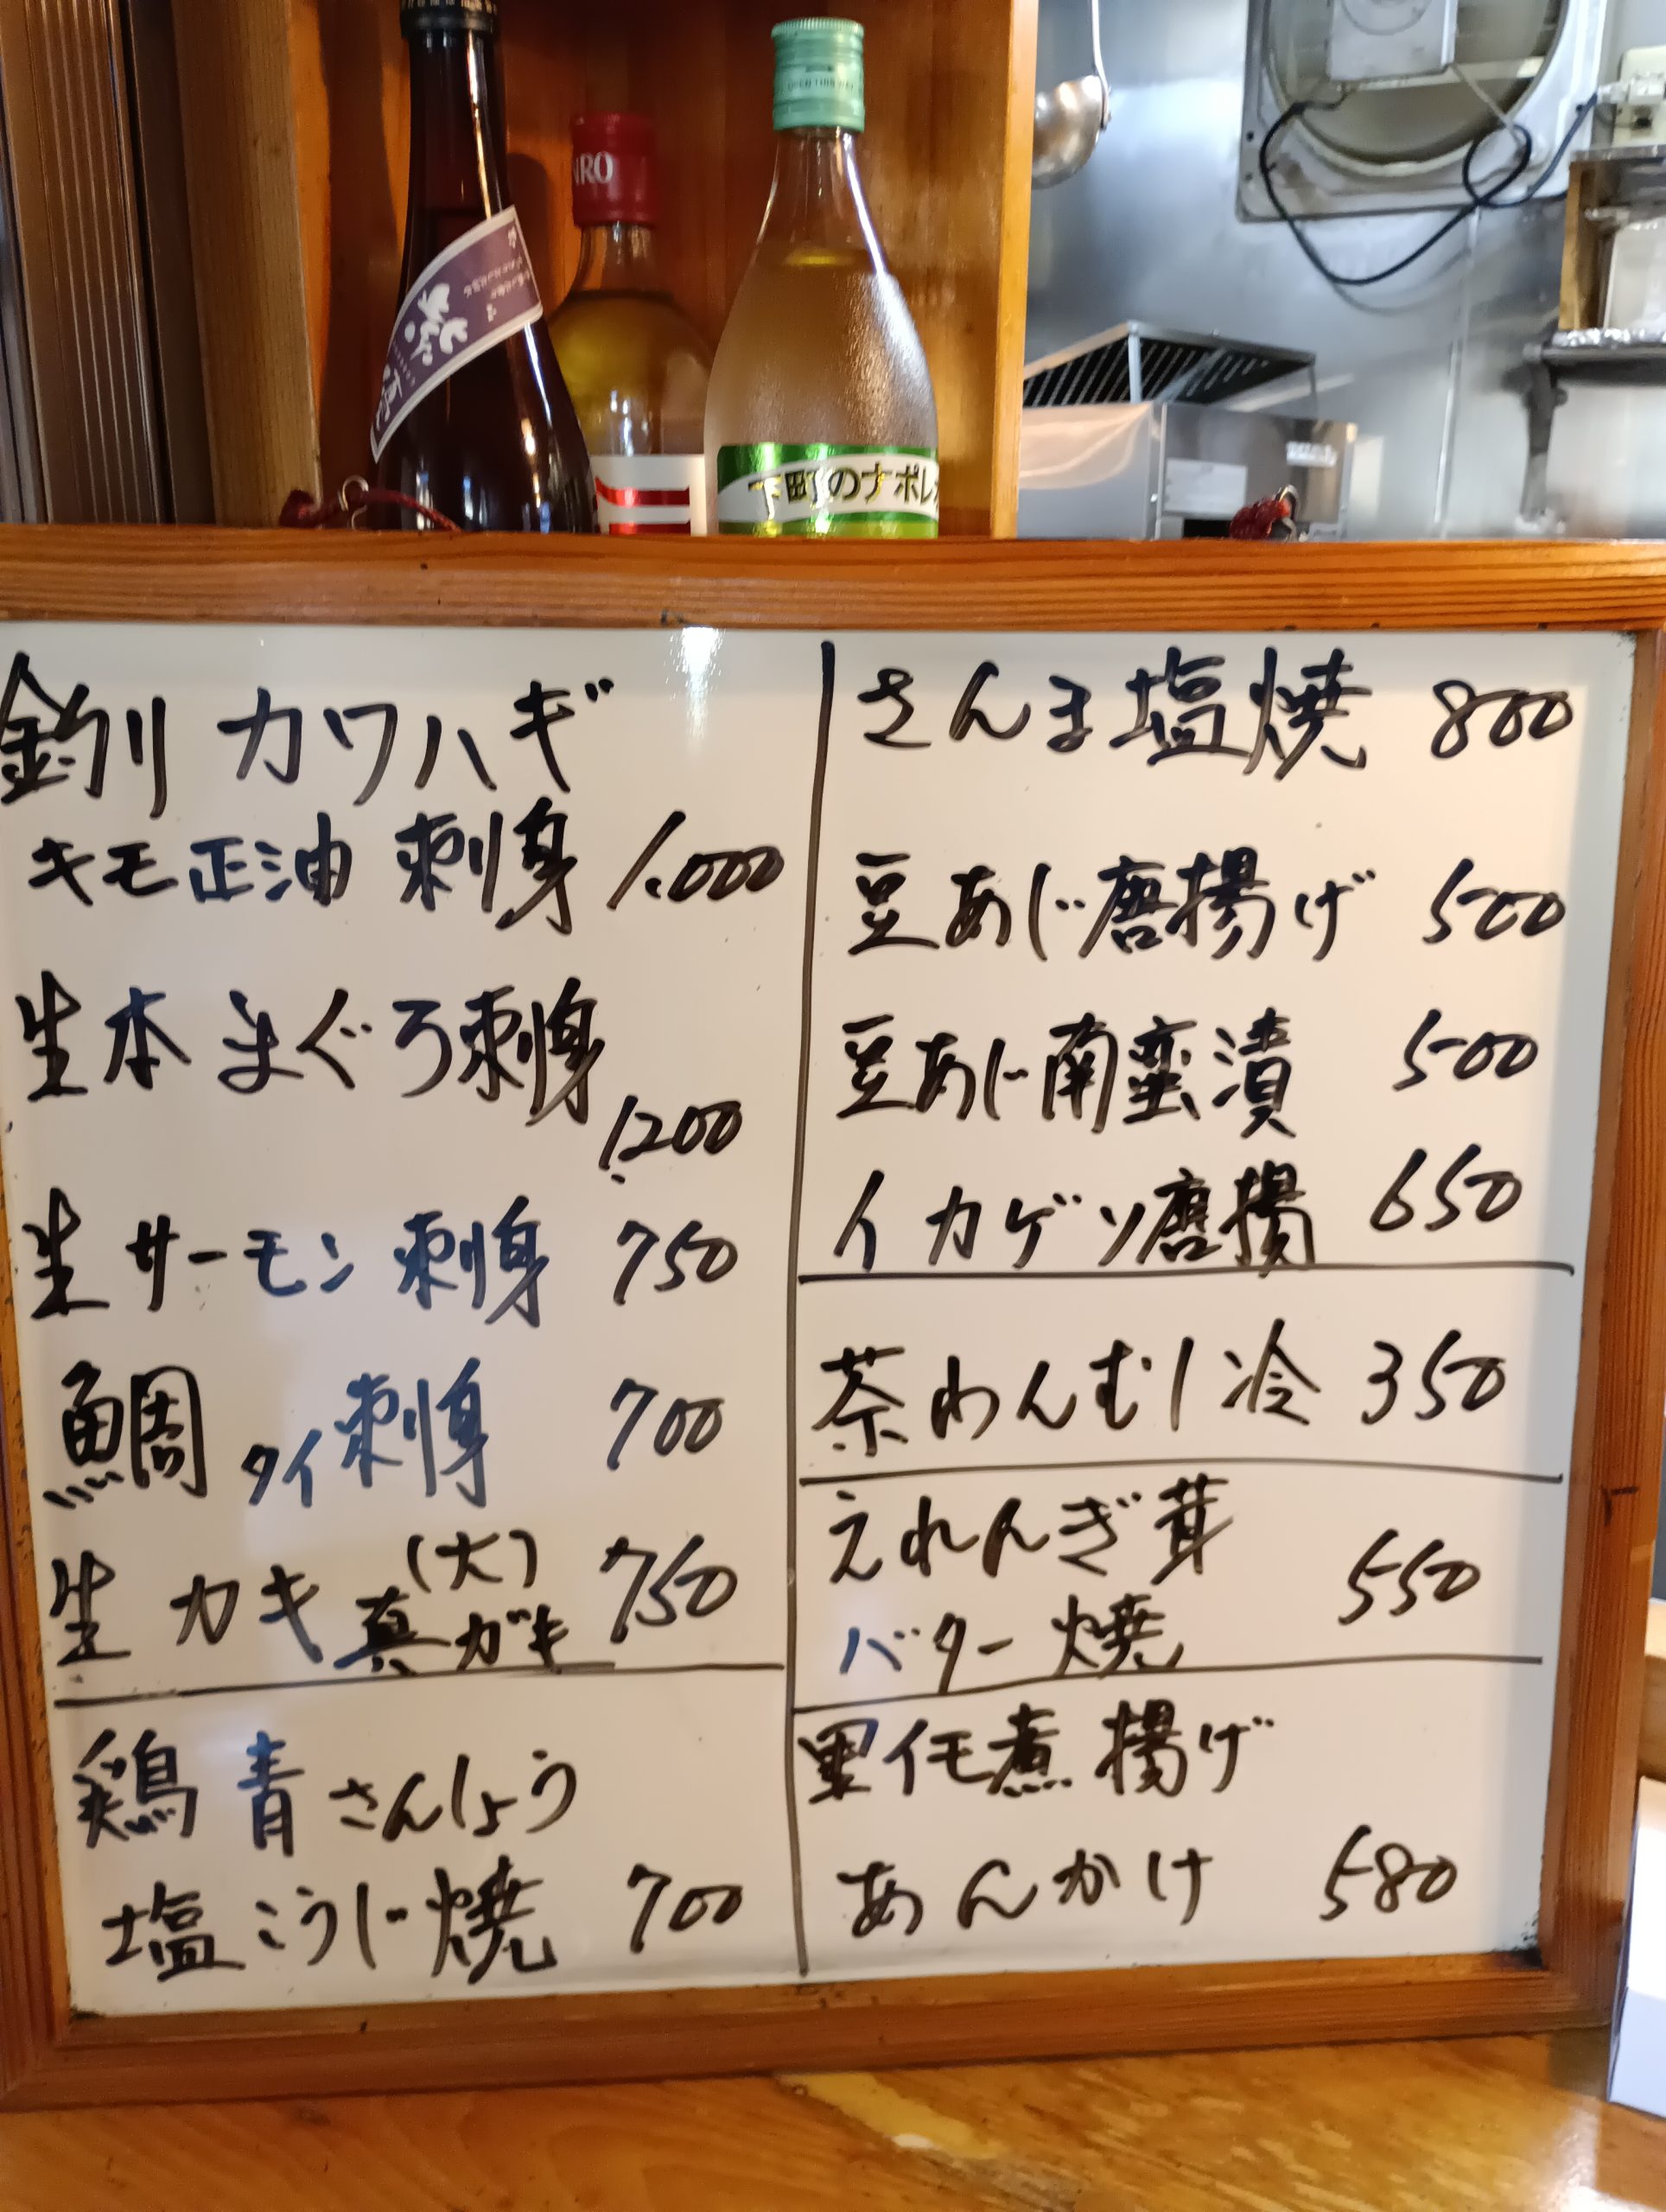 NRO
下町のナポレ
釣り カワハギ
キモ正油 刺身 1.000
生本まぐろ刺身
1.200
生サーモン刺身 750
鯛 タイ刺身 700
生カキ (大) 真ガキ 750
鶏 青さんしょう
塩こうじ焼 700
さんま塩焼 800
豆あじ唐揚げ 500
豆あじ南蛮漬 500
イカゲソ唐揚 650
茶わんむし冷 350
えれんぎ茸
バター焼 550
里イモ煮揚げ
あんかけ 580